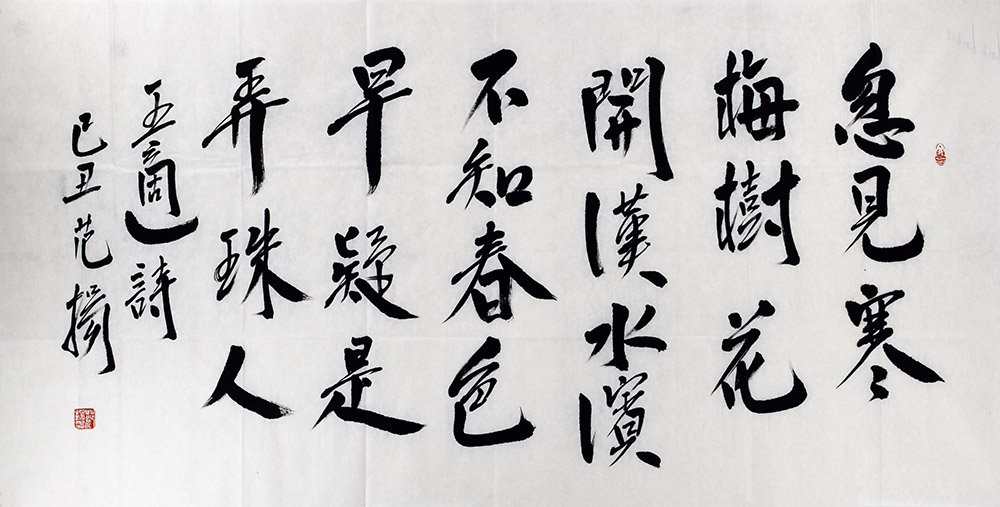 忽見寒
梅樹花
開漢水濱
不知春色
早疑是
弄珠人
王適詩
己丑范